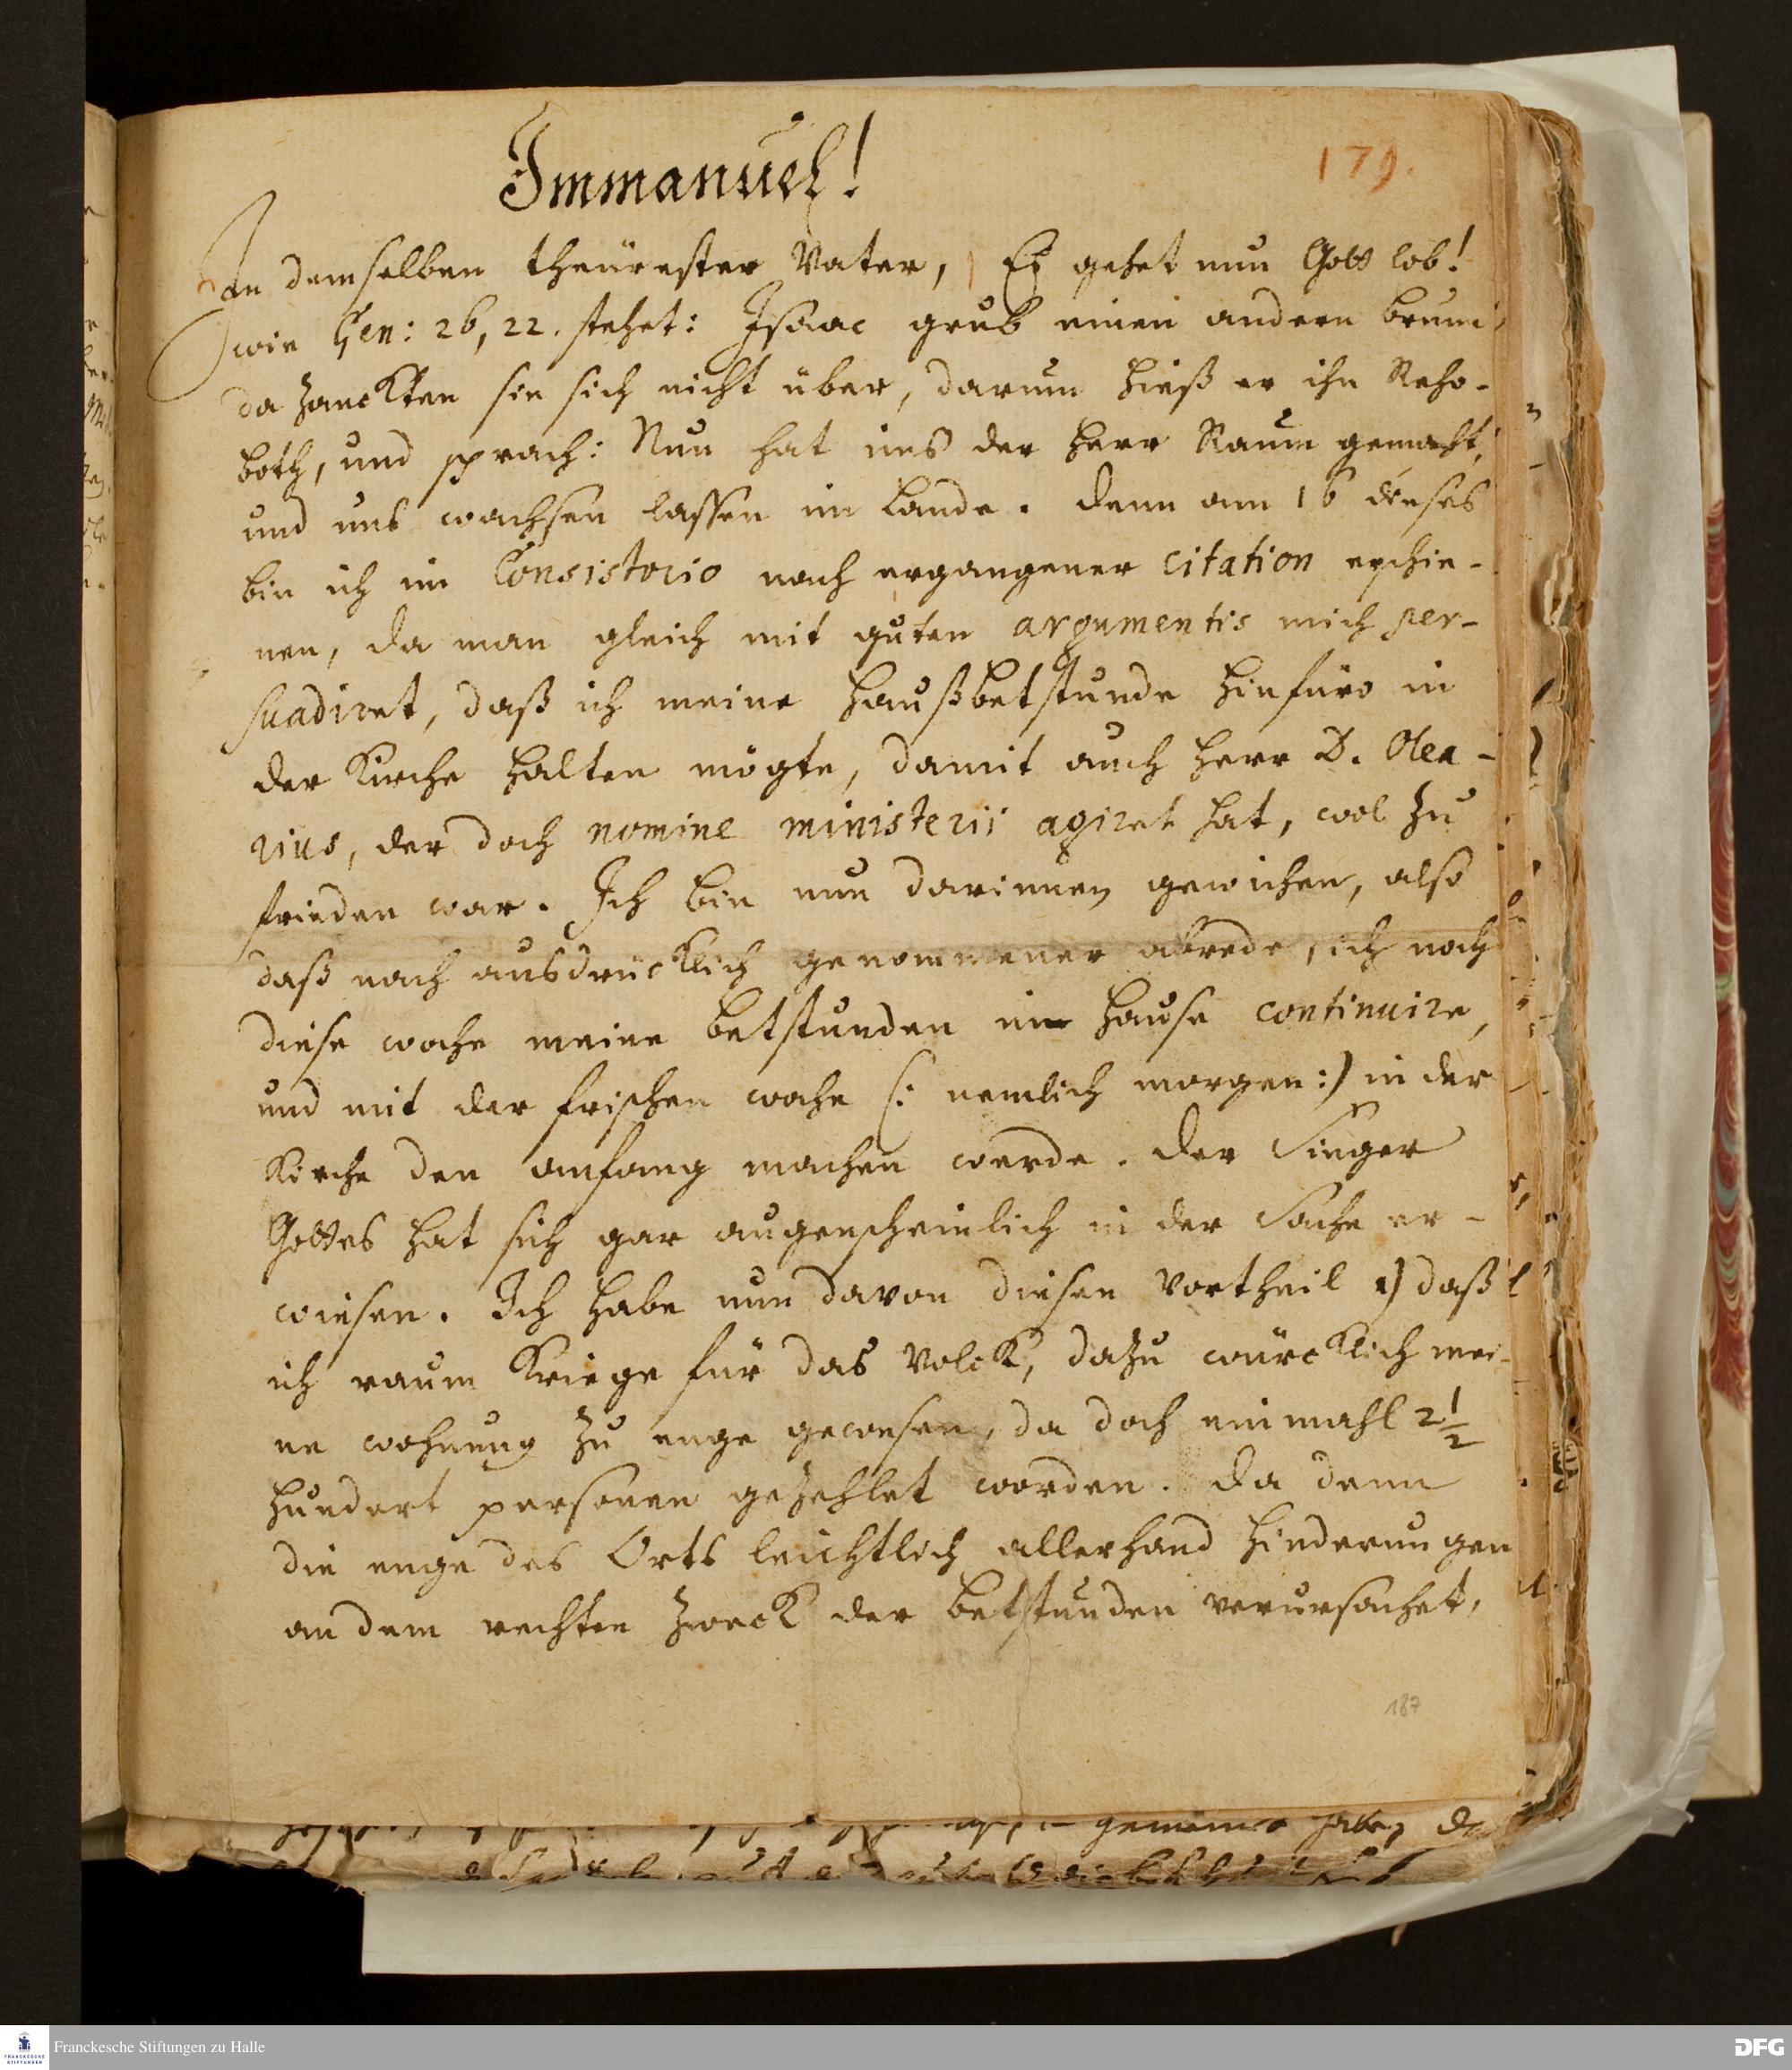 Immanuel!
179.
In demselben theürester Vater, Es gehet nun Gott lob!
wie Gen: 26, 22. stehet: Isaac grub einen andern brunn,
da zanckten sie sich nicht über, darum hieß er ihn Reho-
both, und sprach: Nun hat uns der Herr Raum gemacht,
und uns wachsen lassen im Lande. Denn am 16 dieses
bin ich im Consistorio nach ergangener citation erschie-
nen, da man gleich mit guten argumentis mich per-
suadiret, daß ich meine Haußbetstunde hinfüro in
der Kirche halten mögte, damit auch Herr D. Olea-
rius, der doch nomine ministerii agiret hat, wol zu
frieden war. Ich bin nun darinnen gewichen, also
daß nach ausdrücklich genommener abrede, ich noch
diese woche meine betstunden im Hause continuire,
und mit der frischen woche (: nemlich morgen:) in der
Kirche den anfang machen werde. Der Finger
Gottes hat sich gar augenscheinlich in der Sache er-
wiesen. Ich habe nun davon diesen Vortheil 1) daß
ich raum kriege für das Volck, dazu würcklich mei-
ne wohnung zu enge gewesen, da doch einmahl 2 1/2
hundert personen gezehlet worden. Da denn
die enge des Orts leichtlich allerhand hinderungen
an dem rechten zweck der betstunden verursachet,
187
gemeine habe,
Franckesche Stiftungen zu Halle
DFG